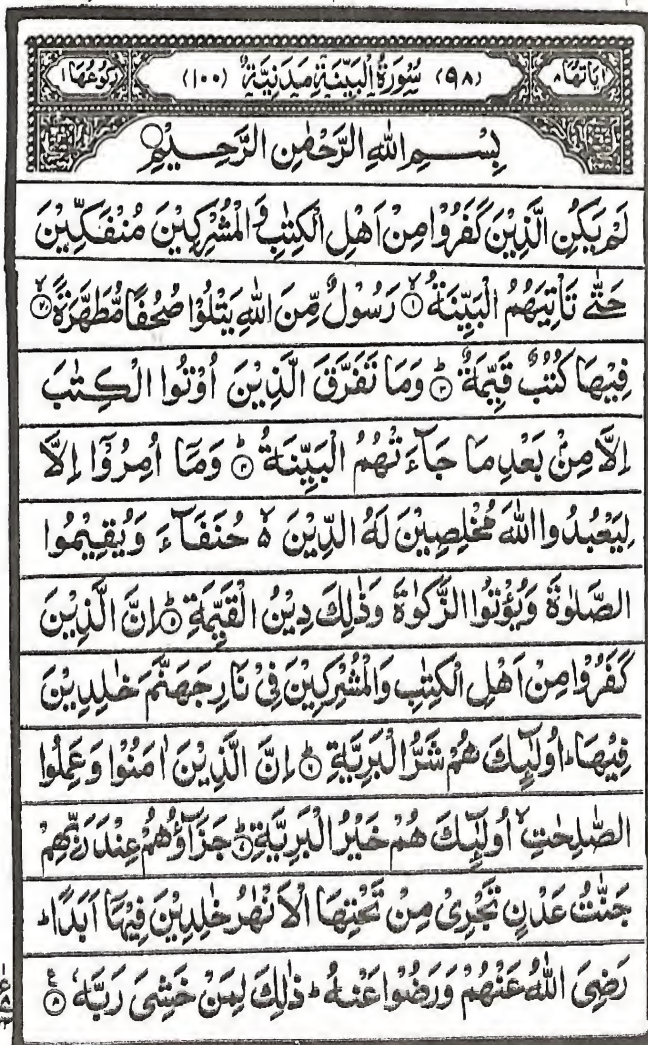 اٰيَاتُهَا ٨ (٩٨) سُوْرَةُ الْبَيِّنَةِ مَدَنِيَّةٌ (١٠٠) رُكُوْعُهَا ١
بِسْمِ اللهِ الرَّحْمٰنِ الرَّحِيْمِ
لَمْ يَكُنِ الَّذِيْنَ كَفَرُوْا مِنْ اَهْلِ الْكِتٰبِ وَ الْمُشْرِكِيْنَ مُنْفَكِّيْنَ
حَتّٰى تَاْتِيَهُمُ الْبَيِّنَةُ ۙ﴿١﴾ رَسُوْلٌ مِّنَ اللهِ يَتْلُوْا صُحُفًا مُّطَهَّرَةً ۙ﴿٢﴾
فِيْهَا كُتُبٌ قَيِّمَةٌ ؕ﴿٣﴾ وَمَا تَفَرَّقَ الَّذِيْنَ اُوْتُوا الْكِتٰبَ
اِلَّا مِنْۢ بَعْدِ مَا جَآءَتْهُمُ الْبَيِّنَةُ ؕ﴿٤﴾ وَمَآ اُمِرُوْٓا اِلَّا
لِيَعْبُدُوا اللهَ مُخْلِصِيْنَ لَهُ الدِّيْنَ ۙ حُنَفَآءَ وَيُقِيْمُوا
الصَّلٰوةَ وَيُؤْتُوا الزَّكٰوةَ وَذٰلِكَ دِيْنُ الْقَيِّمَةِ ؕ﴿٥﴾ اِنَّ الَّذِيْنَ
كَفَرُوْا مِنْ اَهْلِ الْكِتٰبِ وَالْمُشْرِكِيْنَ فِيْ نَارِ جَهَنَّمَ خٰلِدِيْنَ
فِيْهَا ؕ اُولٰٓئِكَ هُمْ شَرُّ الْبَرِيَّةِ ؕ﴿٦﴾ اِنَّ الَّذِيْنَ اٰمَنُوْا وَعَمِلُوا
الصّٰلِحٰتِ ۙ اُولٰٓئِكَ هُمْ خَيْرُ الْبَرِيَّةِ ؕ﴿٧﴾ جَزَآؤُهُمْ عِنْدَ رَبِّهِمْ
جَنّٰتُ عَدْنٍ تَجْرِيْ مِنْ تَحْتِهَا الْاَنْهٰرُ خٰلِدِيْنَ فِيْهَآ اَبَدًا ؕ
رَضِيَ اللهُ عَنْهُمْ وَرَضُوْا عَنْهُ ؕ ذٰلِكَ لِمَنْ خَشِيَ رَبَّهٗ ﴿٨﴾